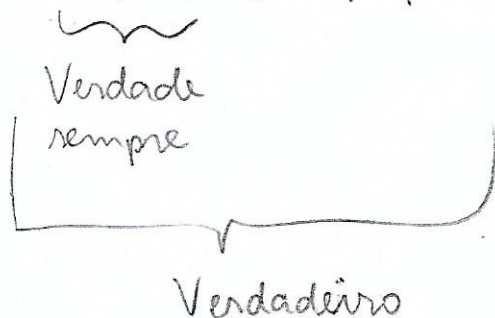 Verdade
sempre
Verdadeiro